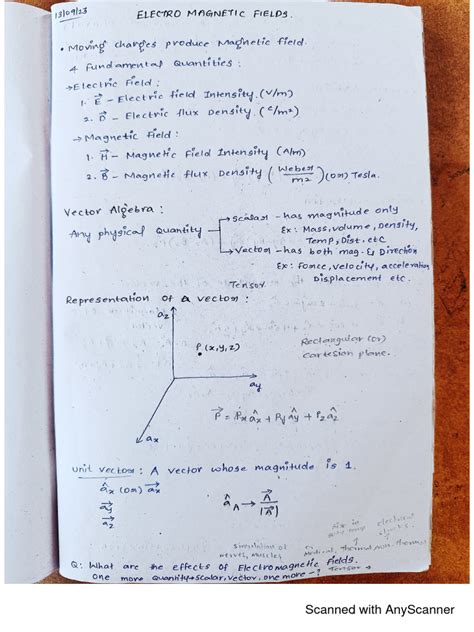 13/09/23
ELECTRO MAGNETIC FIELDS.
• Moving charges produce Magnetic field.
4 Fundamental Quantities :
→ Electric Field :
1. E⃗ - Electric field Intensity. (V/m)
2. D⃗ - Electric flux Density. (C/m²)
→ Magnetic Field :
1. H⃗ - Magnetic Field Intensity (A/m)
2. B⃗ - Magnetic flux Density (Weber/m²) (or) Tesla.
Vector Algebra :
Any physical Quantity
→ Scalar - has magnitude only
Ex : Mass, volume, Density,
Temp, Dist. etc
→ Vector - has both mag. & Direction
Ex : Force, velocity, acceleration,
Displacement etc.
Tensor
Representation of a vector :
az
P(x,y,z)
Rectangular (or)
cartesion plane.
ay
P⃗ = Pxâx + Pyây + Pzâz
ax
Unit vector : A vector whose magnitude is 1.
âx (or) a⃗x
a⃗y
a⃗z
âA → A⃗/|A⃗|
electrical
nerves, muscles
medical, thermal
Q: What are the effects of Electromagnetic Fields.
one more Quantity → scalar, vector, one more - ? Tensor
Scanned with AnyScanner